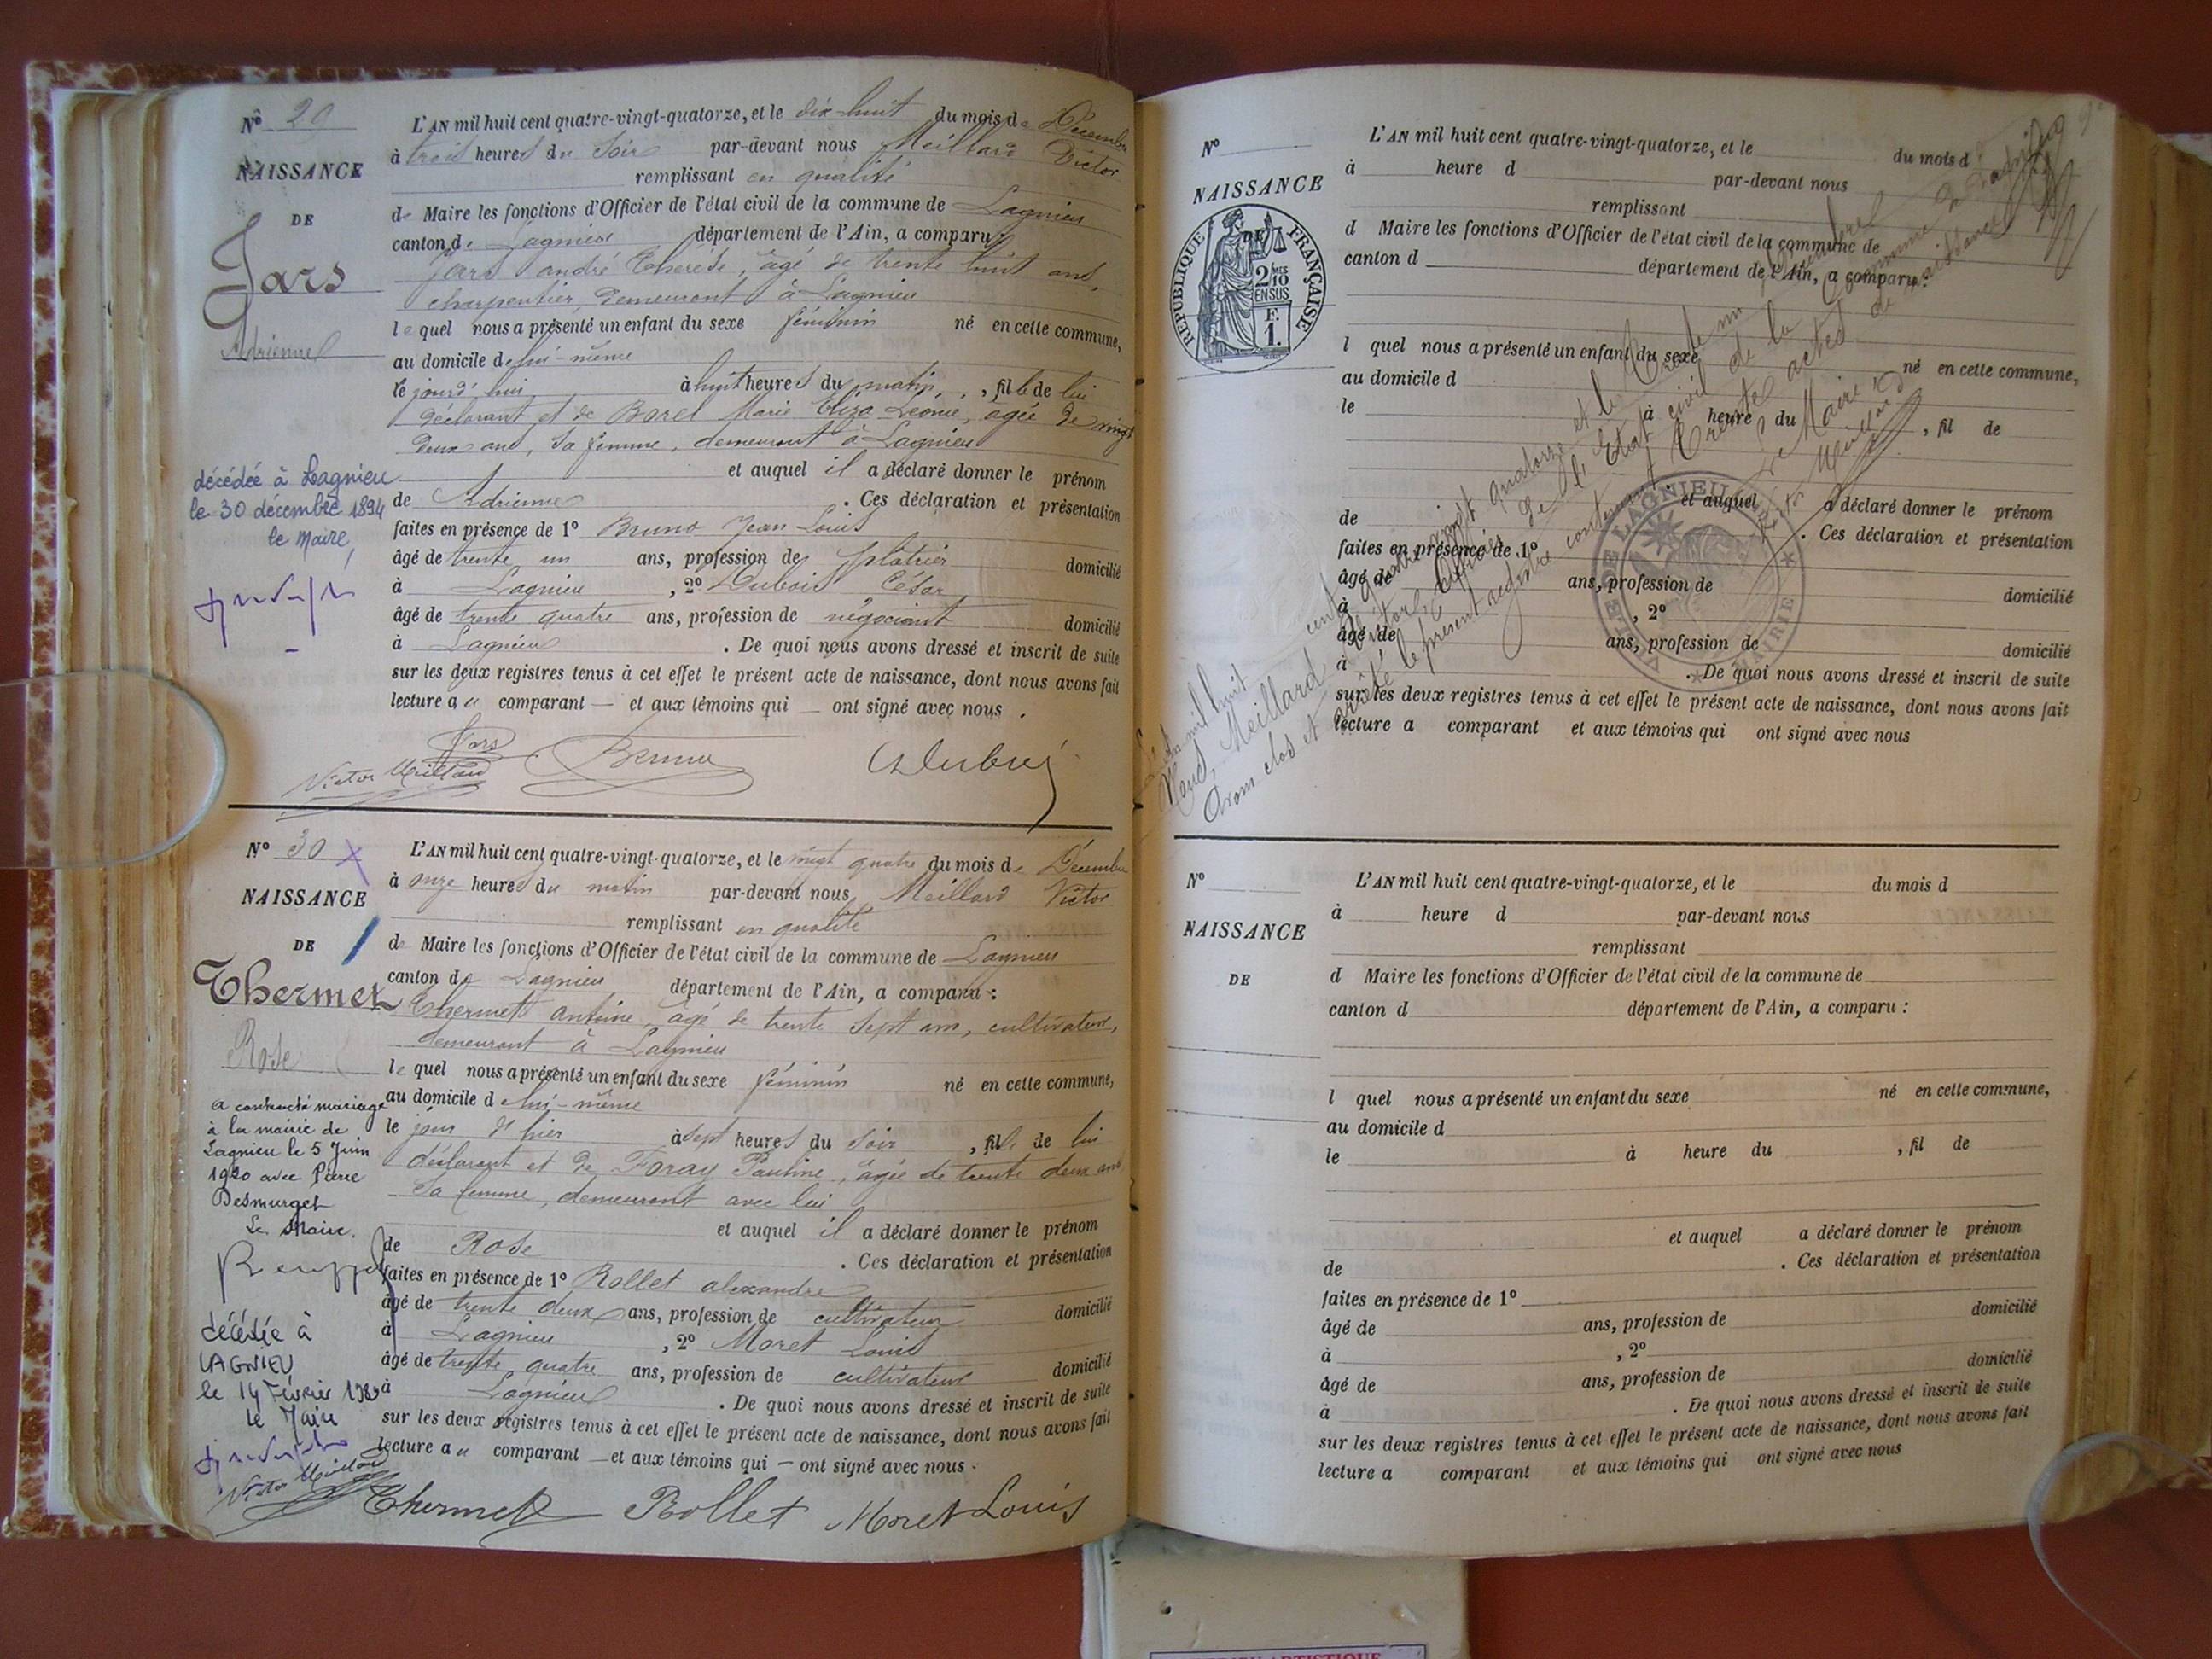 Nº 20
NAISSANCE
DE
Jars
Adrienne
L'AN mil huit cent quatre-vingt-quatorze, et le dix-huit du mois de Décembre
à trois heures du soir par-devant nous Meillard Victor
remplissant en qualité
de Maire les fonctions d'Officier de l'état civil de la commune de Lagnieu
canton de Lagnieu département de l'Ain, a comparu :
Jars andré Thérèse, âgé de trente huit ans,
charpentier, demeurant à Lagnieu
lequel nous a présenté un enfant du sexe féminin né en cette commune,
au domicile de lui-même
le jourd'hui à huit heures du matin, fille de lui
déclarant et de Borel Marie Eliza Leonie, agée de vingt
deux ans, sa femme, demeurant à Lagnieu
et auquel il a déclaré donner le prénom
de Adrienne . Ces déclaration et présentation
faites en présence de 1º Bruno Jean Louis
âgé de trente un ans, profession de plâtrier domicilié
à Lagnieu , 2º Dubois César
âgé de trente quatre ans, profession de négociant domicilié
à Lagnieu . De quoi nous avons dressé et inscrit de suite
sur les deux registres tenus à cet effet le présent acte de naissance, dont nous avons fait
lecture au comparant — et aux témoins qui — ont signé avec nous .
décédée à Lagnieu
le 30 décembre 1894
le Maire,
Jars
Victor Meillard
Nº 30
NAISSANCE
DE
Thermet
Rose
L'AN mil huit cent quatre-vingt-quatorze, et le vingt quatre du mois de Décembre
à onze heures du matin par-devant nous Meillard Victor
remplissant en qualité
de Maire les fonctions d'Officier de l'état civil de la commune de Lagnieu
canton de Lagnieu département de l'Ain, a comparu :
Thermet antoine, âgé de trente sept ans, cultivateur,
demeurant à Lagnieu
lequel nous a présenté un enfant du sexe féminin né en cette commune,
au domicile de lui-même
le jour d'hier à sept heures du soir , fille de lui
déclarant et de Foray Pauline, âgée de trente deux ans
sa femme, demeurant avec lui
et auquel il a déclaré donner le prénom
de Rose . Ces déclaration et présentation
faites en présence de 1º Rollet alexandre
âgé de trente deux ans, profession de cultivateur domicilié
à Lagnieu , 2º Moret Louis
âgé de trente quatre ans, profession de cultivateur domicilié
à Lagnieu . De quoi nous avons dressé et inscrit de suite
sur les deux registres tenus à cet effet le présent acte de naissance, dont nous avons fait
lecture au comparant — et aux témoins qui — ont signé avec nous .
a contracté mariage
à la mairie de
Lagnieu le 5 Juin
1920 avec Pierre
Desmurget
Le Maire.
décédée à
LAGNIEU
le 14 Février
le Maire
Victor Meillard
Thermet Rollet Moret Louis
Nº
NAISSANCE
DE
RÉPUBLIQUE FRANÇAISE
2/10
EN SUS
F.
1.
L'AN mil huit cent quatre-vingt-quatorze, et le du mois d
à heure d par-devant nous
remplissant
d Maire les fonctions d'Officier de l'état civil de la commune de
canton d département de l'Ain, a comparu :
l quel nous a présenté un enfant du sexe né en cette commune,
au domicile d
le à heure du , fil de
et auquel a déclaré donner le prénom
de . Ces déclaration et présentation
faites en présence de 1º
âgé de ans, profession de domicilié
à , 2º
âgé de ans, profession de domicilié
à . De quoi nous avons dressé et inscrit de suite
sur les deux registres tenus à cet effet le présent acte de naissance, dont nous avons fait
lecture a comparant et aux témoins qui ont signé avec nous
L'an mil huit cent quatre vingt quatorze et le Trente un Décembre
Nous, Meillard Victor, Officier de l'Etat civil de la Commune de Lagnieu
Avons clos et arrêté le présent registre contenant Trente actes de naissance
Le Maire
Victor Meillard
LAGNIEU
MAIRIE
Nº
NAISSANCE
DE
L'AN mil huit cent quatre-vingt-quatorze, et le du mois d
à heure d par-devant nous
remplissant
d Maire les fonctions d'Officier de l'état civil de la commune de
canton d département de l'Ain, a comparu :
l quel nous a présenté un enfant du sexe né en cette commune,
au domicile d
le à heure du , fil de
et auquel a déclaré donner le prénom
de . Ces déclaration et présentation
faites en présence de 1º
âgé de ans, profession de domicilié
à , 2º
âgé de ans, profession de domicilié
à . De quoi nous avons dressé et inscrit de suite
sur les deux registres tenus à cet effet le présent acte de naissance, dont nous avons fait
lecture a comparant et aux témoins qui ont signé avec nous
ARTISTIQUE